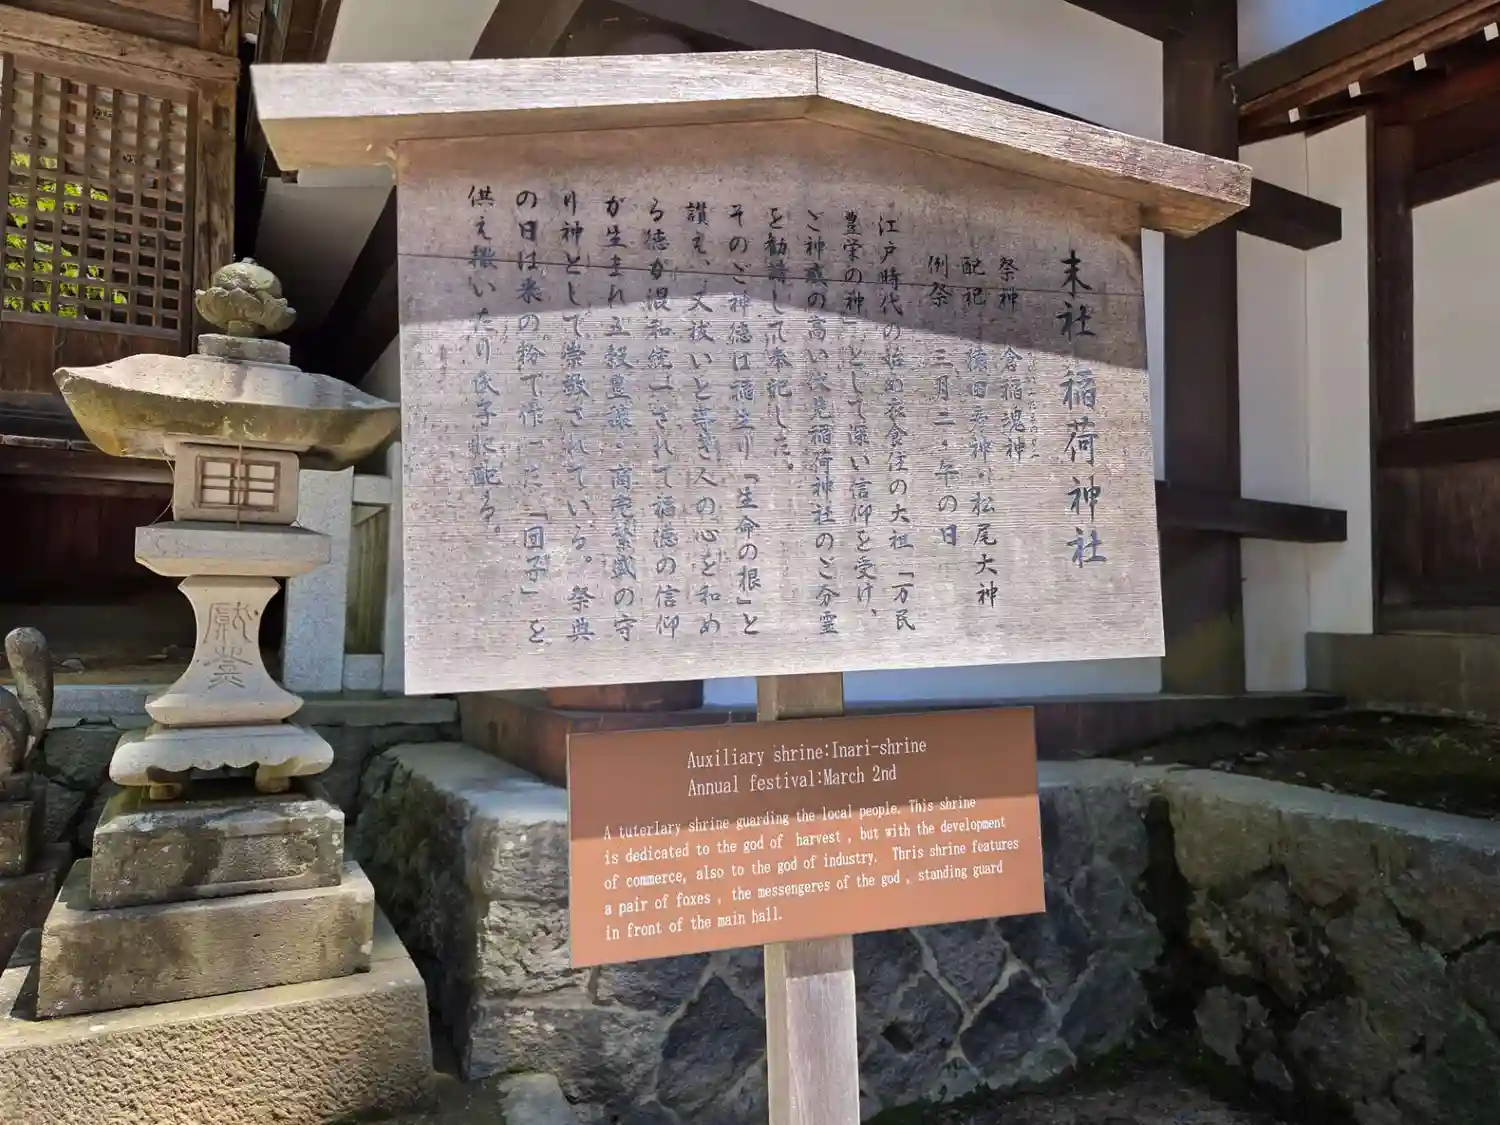 末社 稲荷神社
祭神 倉稲魂神
配祀 猿田彦神・松尾大神
例祭 三月二・午の日
江戸時代の始め衣食住の大祖「万民
豊栄の神」として深い信仰を受け、
ご神威の高い伏見稲荷神社のご分霊
を勧請して奉祀した。
そのご神徳は稲生り「生命の根」と
讃え、又祓いと導き人の心を和め
る徳が混和統一されて福徳の信仰
が生まれ五穀豊穣・商売繁盛の守
り神として崇敬されている。祭典
の日は米の粉で作った「団子」を
供え撒いたり氏子に配る。
献
Auxiliary shrine:Inari-shrine
Annual festival:March 2nd
A tuterlary shrine guarding the local people. This shrine
is dedicated to the god of harvest , but with the development
of commerce, also to the god of industry. Thris shrine features
a pair of foxes , the messengeres of the god , standing guard
in front of the main hall.